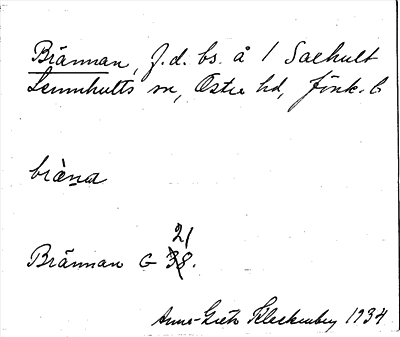 Brännan, f.d. bs. å 1 Saehult
Lemnhults sn, Östra hd, Jönk. l
bräna
Brännan G 21
38.
Anna-Greta Fleckenberg 1934